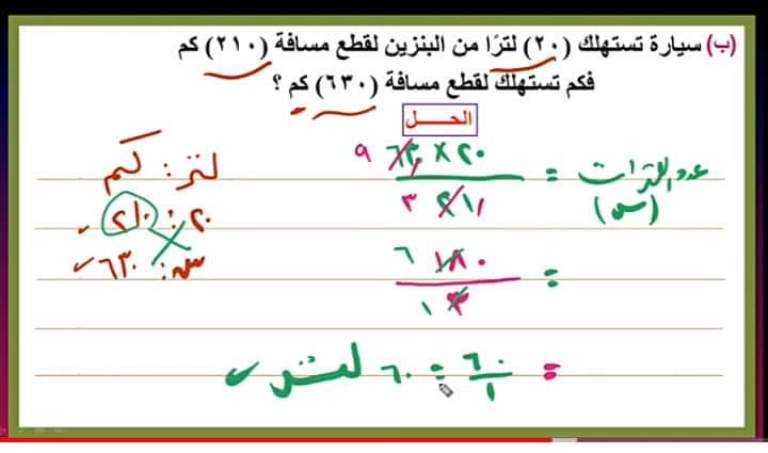 (ب) سيارة تستهلك (٢٠) لترًا من البنزين لقطع مسافة (٢١٠) كم
فكم تستهلك لقطع مسافة (٦٣٠) كم ؟
الحـــل
لتر : كم
٢٠ : ٢١٠
س : ٦٣٠
عدد اللترات (س) = ٢٠ × ٦٣٠ ٩
٢١٠ ٣
= ١٨٠ ٦
٣ ١
= ٦٠/١ = ٦٠ لتر